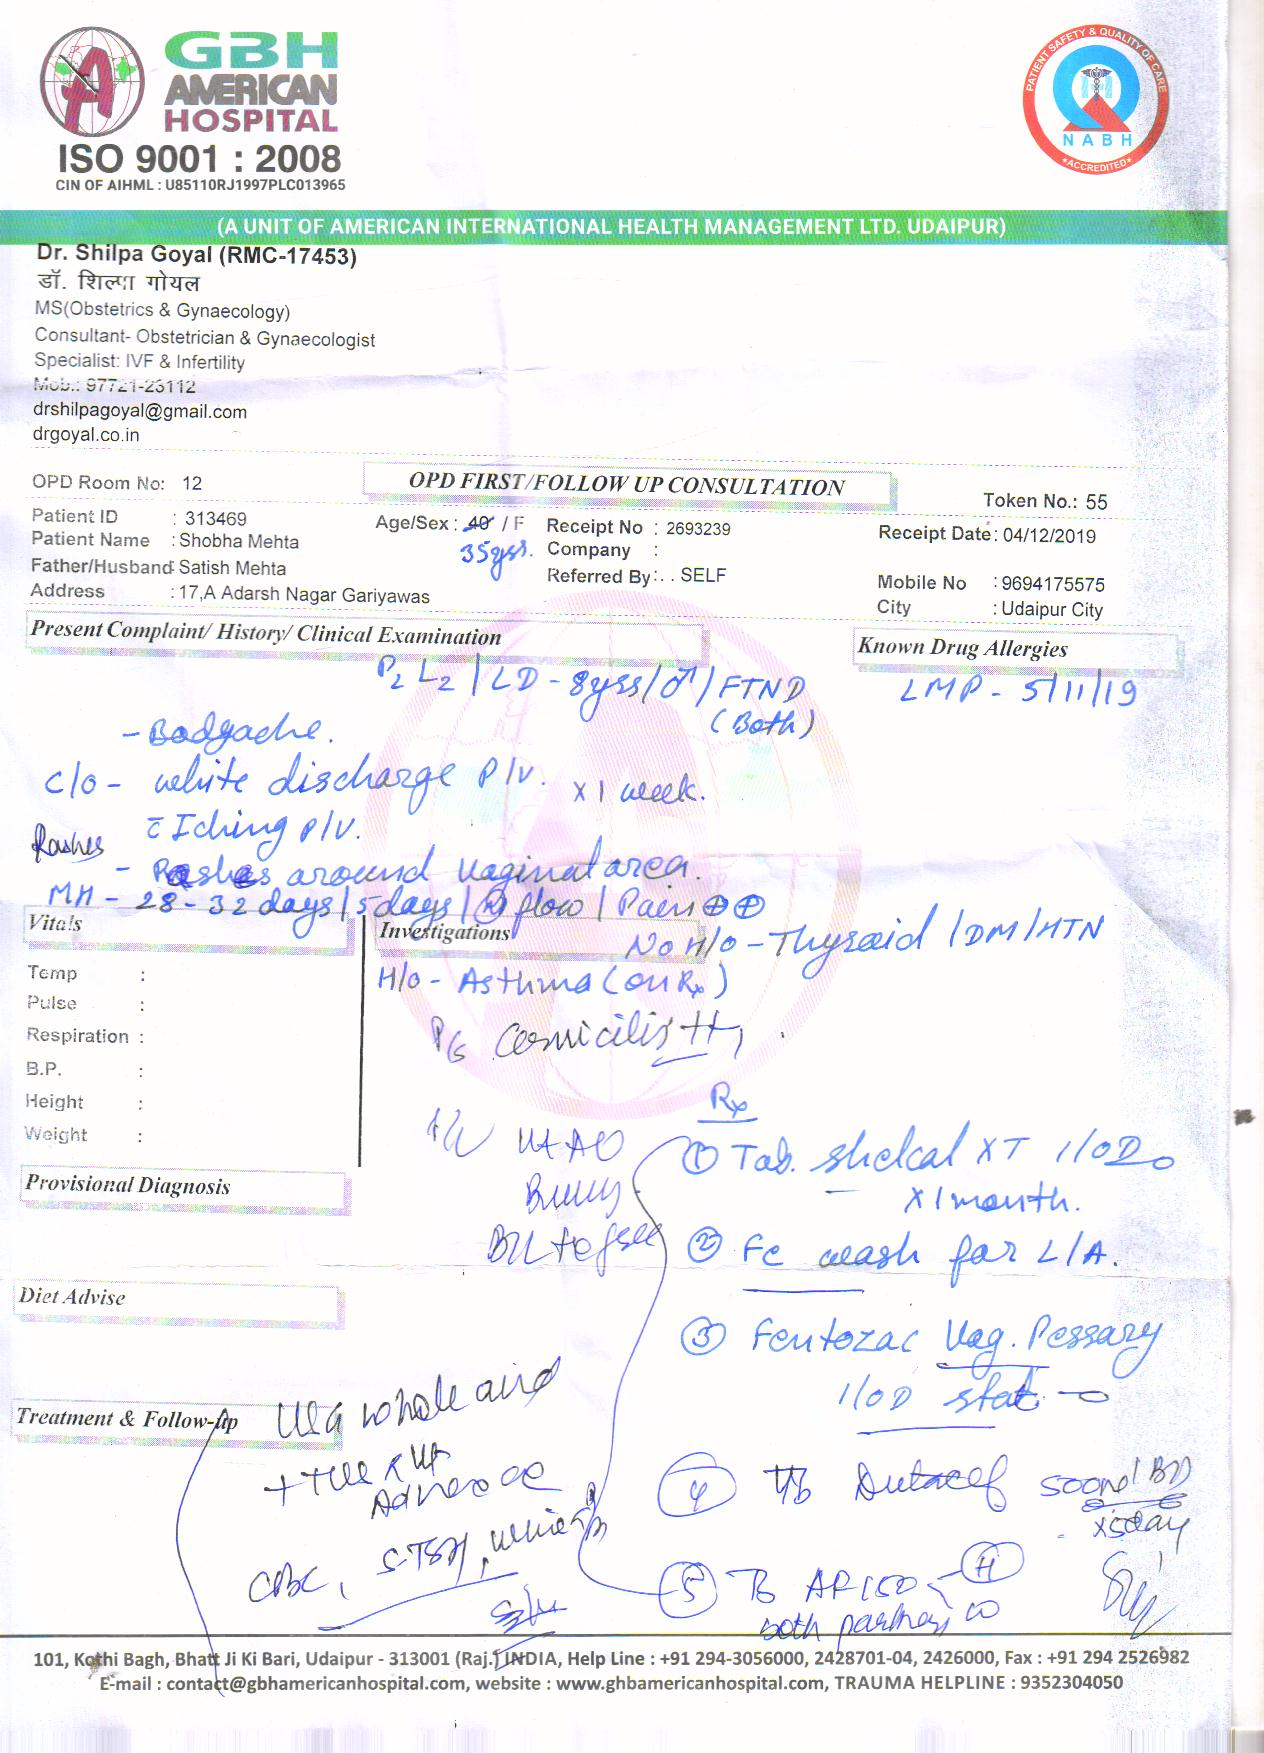 GBH
AMERICAN
HOSPITAL
ISO 9001 : 2008
CIN OF AIHML : U85110RJ1997PLC013965
PATIENT SAFETY & QUALITY OF CARE
NABH
ACCREDITED
(A UNIT OF AMERICAN INTERNATIONAL HEALTH MANAGEMENT LTD. UDAIPUR)
Dr. Shilpa Goyal (RMC-17453)
डॉ. शिल्पा गोयल
MS(Obstetrics & Gynaecology)
Consultant- Obstetrician & Gynaecologist
Specialist: IVF & Infertility
Mob.: 97721-23112
drshilpagoyal@gmail.com
drgoyal.co.in
OPD Room No: 12
OPD FIRST/FOLLOW UP CONSULTATION
Token No.: 55
Patient ID : 313469
Age/Sex : 40 / F
35yrs.
Receipt No : 2693239
Receipt Date: 04/12/2019
Patient Name : Shobha Mehta
Company :
Father/Husband: Satish Mehta
Referred By: . . SELF
Mobile No : 9694175575
Address : 17,A Adarsh Nagar Gariyawas
City : Udaipur City
Present Complaint/ History/ Clinical Examination
Known Drug Allergies
P2 L2 / LD - 8yrs / ♂ / FTND
(Both)
LMP - 5/11/19
- Bodyache.
C/O - white discharge P/V. x 1 week.
c̄ Iching P/V.
Rashes
- Rashes around Vaginal area.
MH - 28-32 days / 5 days / (N) flow / Pain ⊕ ⊕
Vitals
Investigations
No H/O - Thyroid / DM / HTN
Temp :
H/o - Asthma (on Rx)
Pulse :
Respiration :
B.P. :
Height :
Weight :
Rx
① Tab. Shelcal XT 1/OD
x 1 month.
Provisional Diagnosis
② Fc wash for L/A.
Diet Advise
③ Fentozac Vag. Pessary
1/OD stat
Treatment & Follow-up
whole
+
④ 500 1 BD
x 5 day
CBC, S-TSH,
⑤ AF 150
both partners
101, Kothi Bagh, Bhatt Ji Ki Bari, Udaipur - 313001 (Raj.) INDIA, Help Line : +91 294-3056000, 2428701-04, 2426000, Fax : +91 294 2526982
E-mail : contact@gbhamericanhospital.com, website : www.ghbamericanhospital.com, TRAUMA HELPLINE : 9352304050